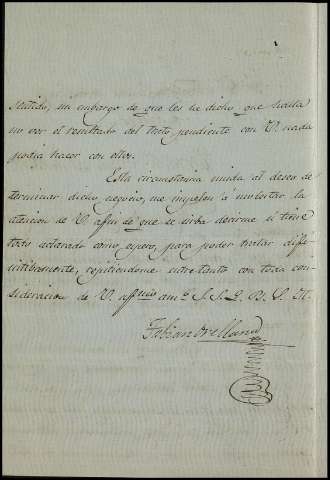 sentido, sin embargo de que les he dicho que hasta
no ver el resultado del trato pendiente con V. nada
podia hacer con ellos.
Esta circunstancia unida al deseo de
terminar dicho negocio, me impelen á molestar la
atencion de V. afin de que se sirba decirme si tiene
esto aclarado como espero, para poder tratar difi-
nitibamente, repitiendome entretanto con toda con-
sideracion de V. affmo. amo. S. S. Q. B. S. M.
Fabian Orellana